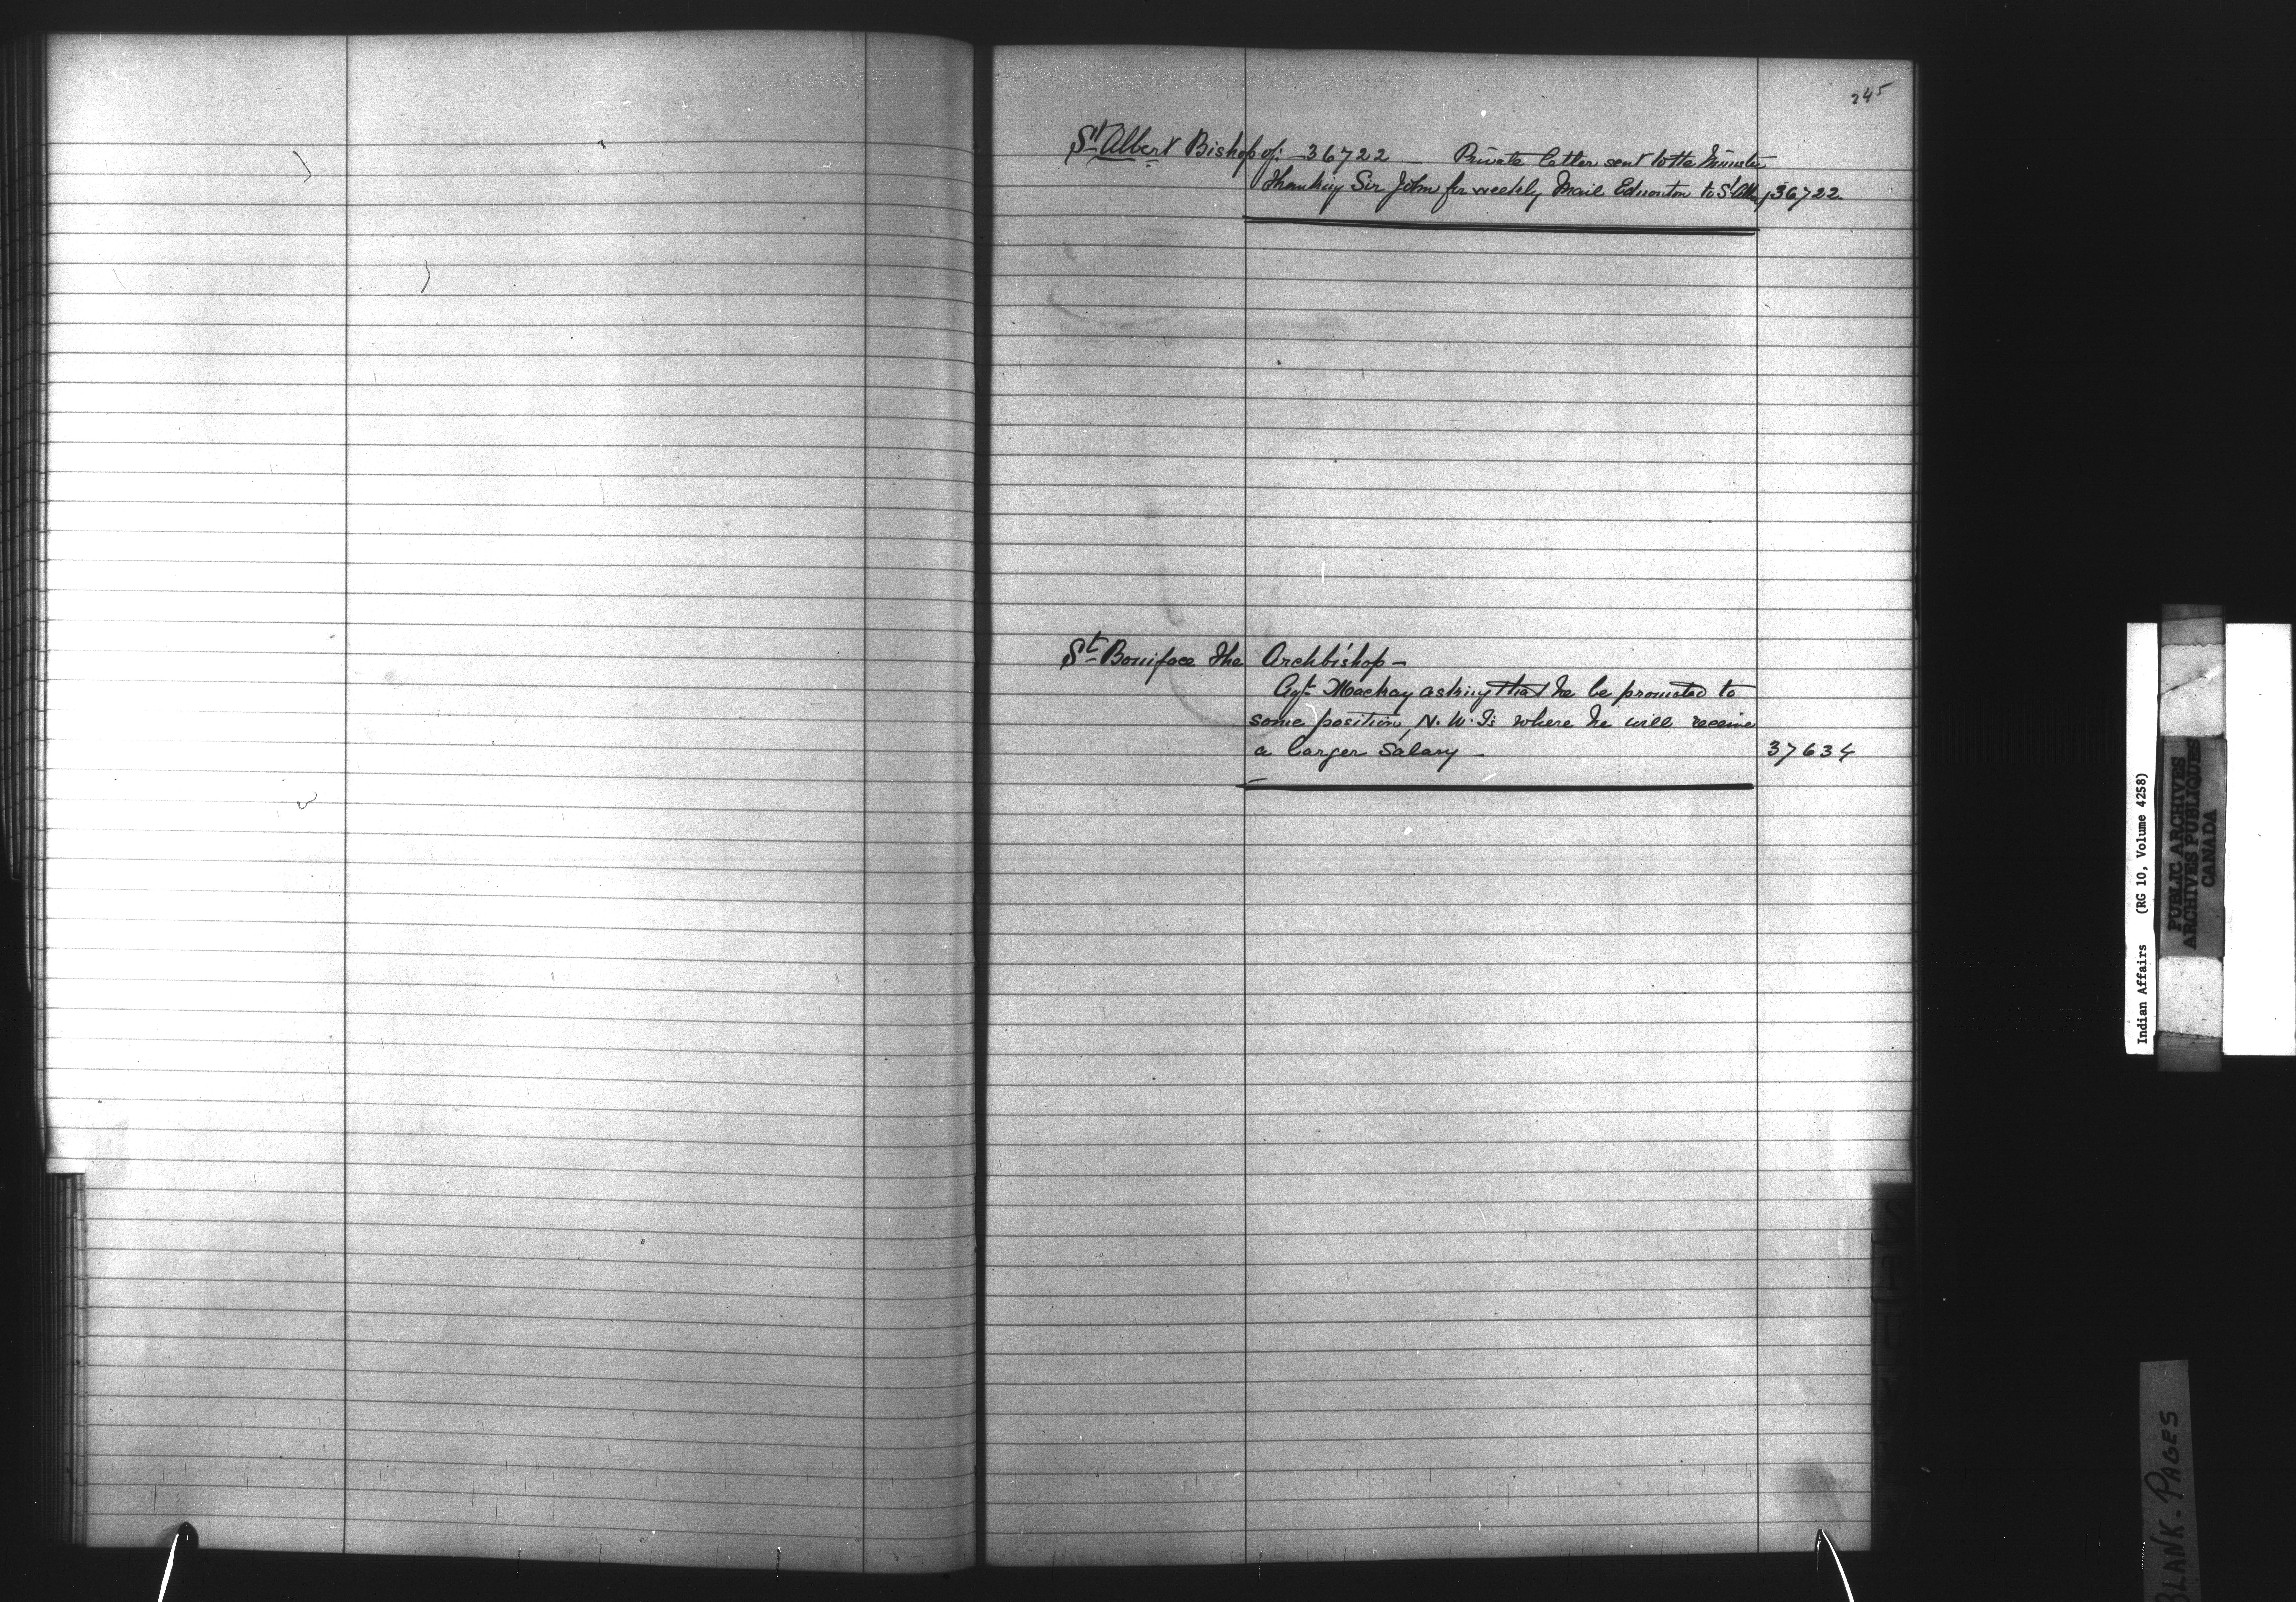 245
St Albert Bishop of: - 36722 - Private letter sent to the Minister
Thanking Sir John for weekly Mail Edmonton to St Alb, 36722
St Boniface The Archbishop -
Agt Mackay asking that he be promoted to
some position, N. W. Ts where he will receive
a larger Salary - 37634
Indian Affairs (RG 10, Volume 4258)
PUBLIC ARCHIVES
ARCHIVES PUBLIQUES
CANADA
BLANK-PAGES